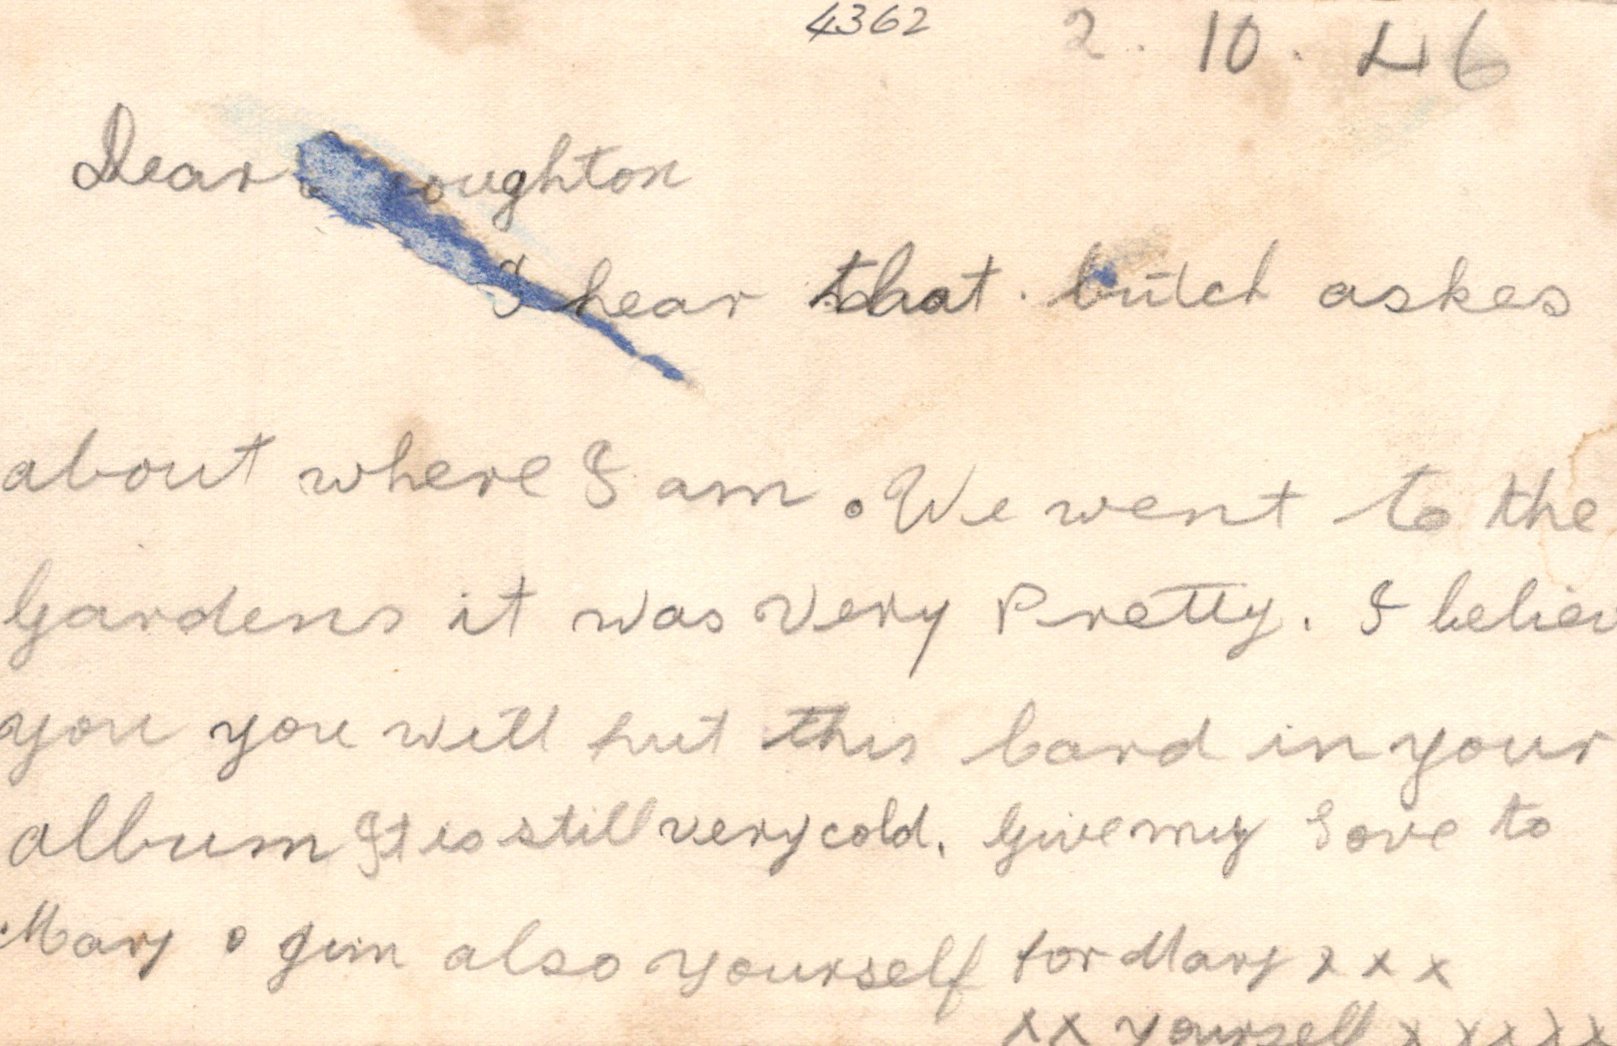 4362 2. 10. 46
Dear oughton
I hear that. butch askes
about where I am. We went to the
Gardens it was Very Pretty. I believ
you you will put this Card in your
album It is still very cold. Give my Love to
Mary & Jim also yourself for Mary x x x
xx yourself x x x x x